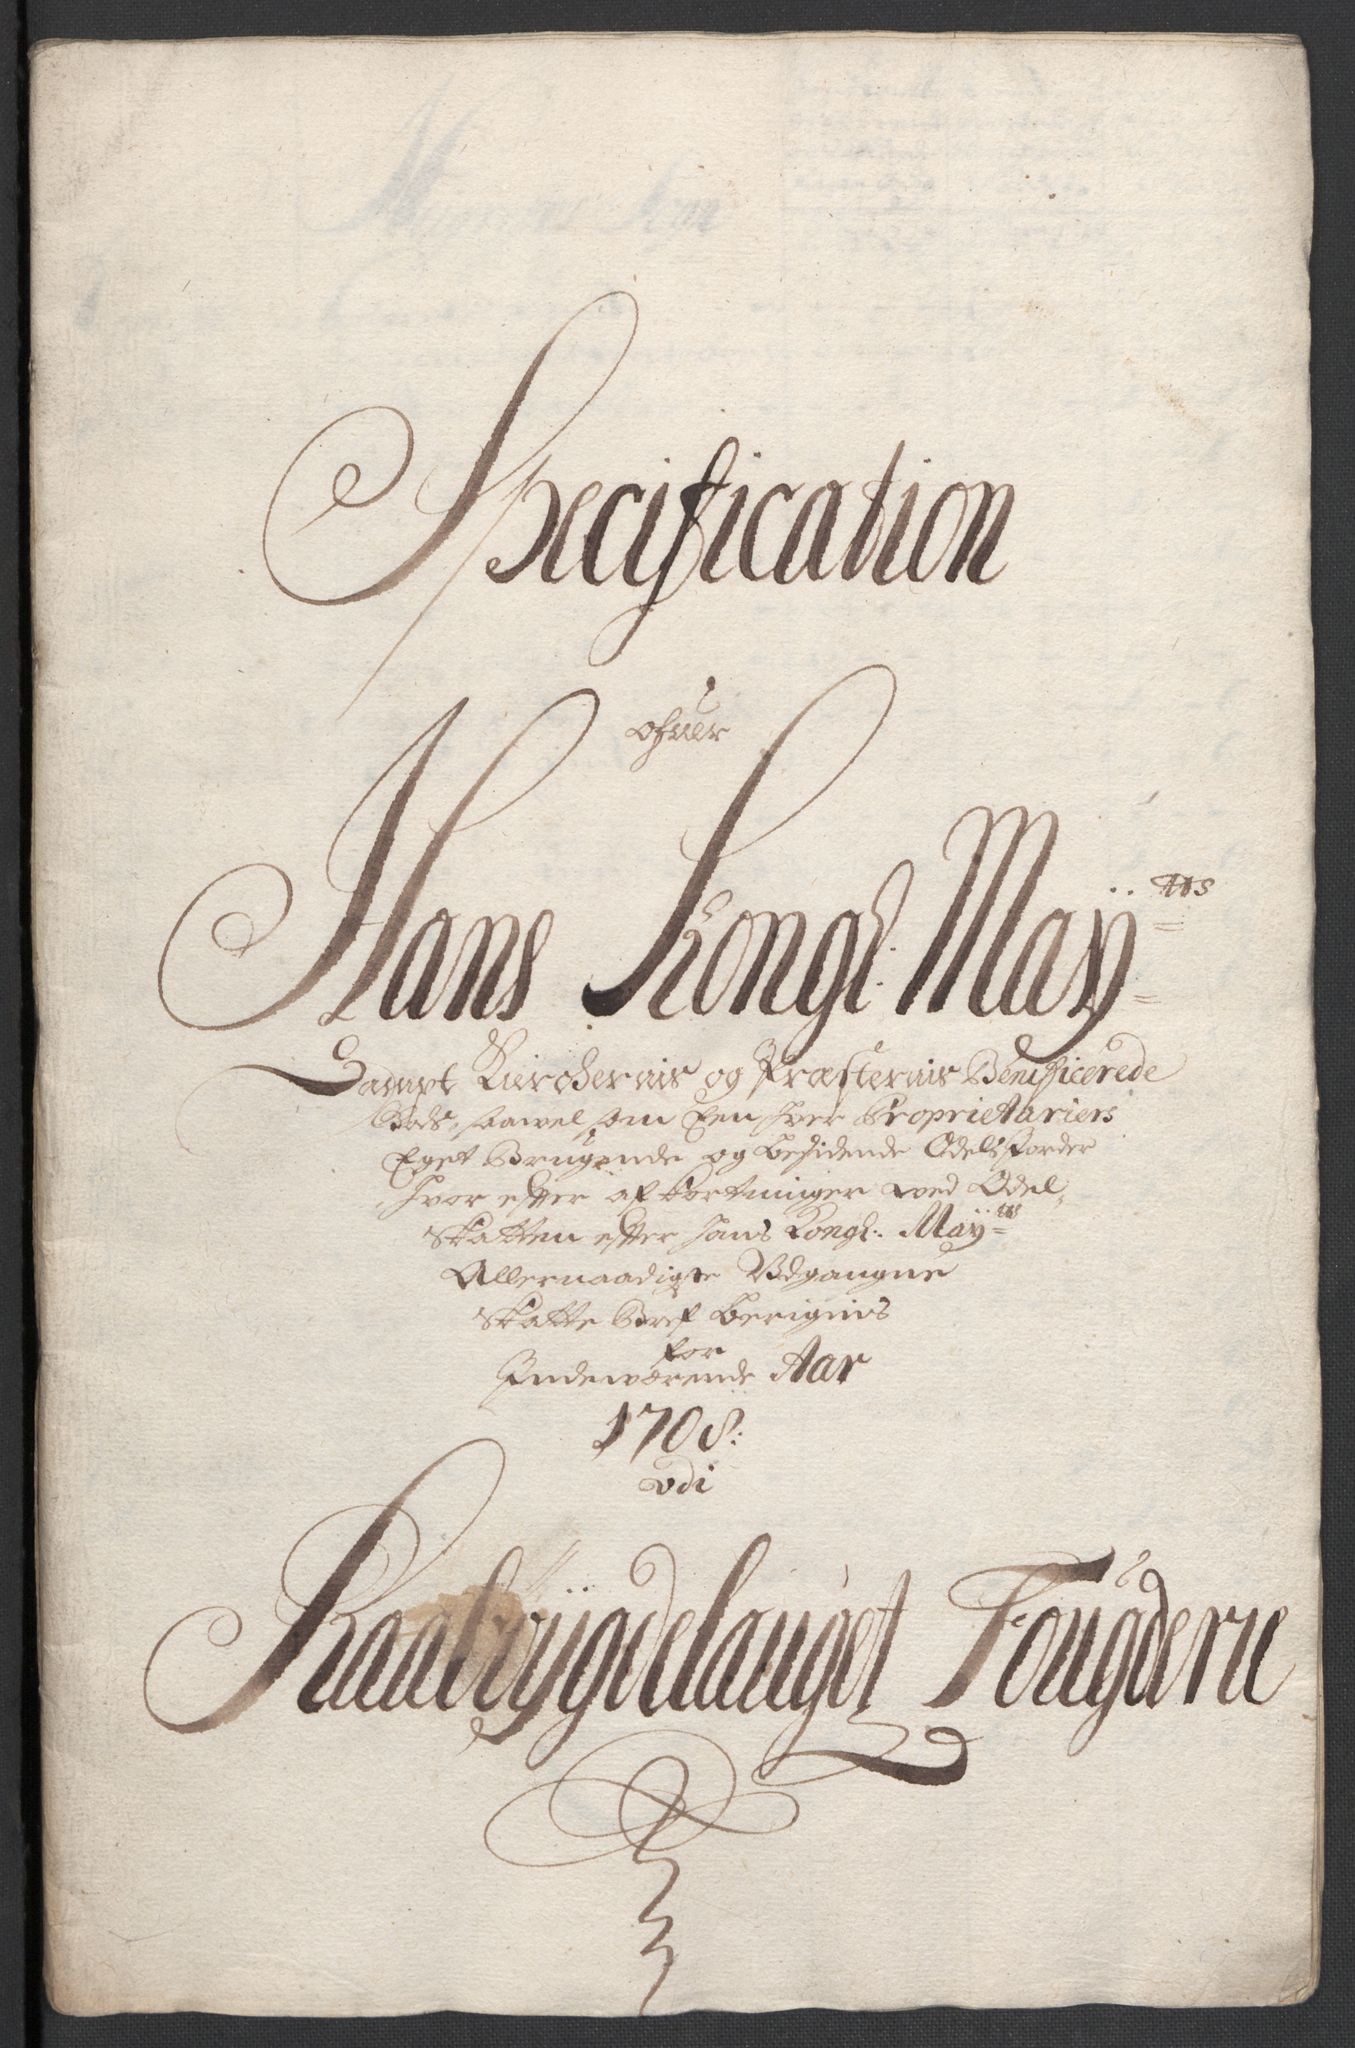 Specification
ofuer
Hans Kongl: Maÿ:tts
Sampt Kierchernis og Præsternis Benificerede
Gods, saavel som Een hver Proprietariers
Eget Brugende og besidende Odels Jorder
hvor efter afkortninger wed Odel,
Skatten efter hans Kongl: Maÿ:tts
Allernaadigste Udgangne
Skatte Bref berignis
for
Indewærende Aar
1708:
udi
Raabÿgdelauget Fougderie